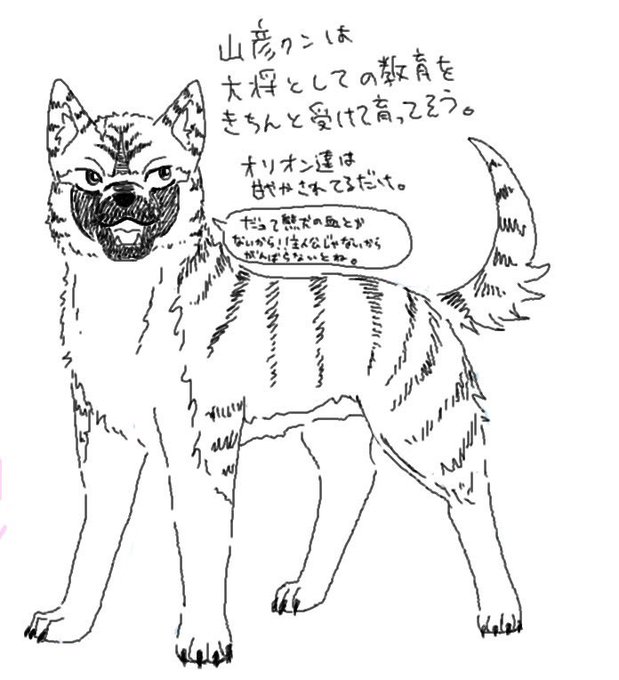 山彦クンは
大将としての教育を
きちんと受けて育ってそう。
オリオン達は
甘やかされてるだけ。
だって熊犬の血とか
ないから!!主人公じゃないから
がんばらないとね。